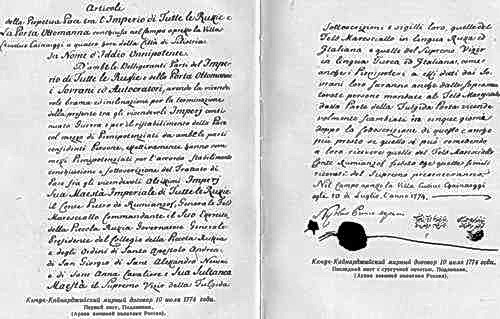 Articoli
della Perpetua Pace tra l'Imperio di Tutte le Russie e
La Porta Ottomanna conchiusa nel campo apresso la Villa
Kiuciuc Cainargi a quatro hore della Città di
In Nome d'Iddio Onnipotente!
D'ambe le Belligeranti Parti dell'Impe-
rio di Tutte le Russie e della Porta Ottomanna
i Sovrani ed Autocratori, avendo la vicende-
vole brama ed inclinazione per la terminazione
della presente tra gl' vicendevoli Imperj conti-
nuata Guerra e per il ristabilimento della Pace
col mezzo di Plenipotenziati da ambe le parti
confidenti Persone, effettivamente hanno
Plenipotenziati per l'accordo, stabilimento
conchiusione e sottoscrizione del Trattato di
Pace fra gli vicendevoli Altissimi Imperj
Sua Maestà Imperiale di Tutte le Russie
il Conte Pietro de Rumianzof, Generale Feld
Maresciallo Commandante il Suo Esercito
della Piccola Russia Governatore Generale
Presidente del Collegio della Piccola Russia
e degli Ordini di Santo Apostolo Andrea,
di San Giorgio di Sant Alexandro Newski
e di Sant Anna Cavaliere e Sua Sultanea
Maestà il Supremo Visir della Fulgida
Кючук-Кайнарджийский мирный договор 10 июля 1774 года.
Первый лист, Подлинник.
(Архив внешней политики России).
Sottoscrizioni e sigilli loro, quello del
Feld Maresciallo in lingua Russa ed
Italiana e quello del Supremo Visir
in lingua Turca ed Italiana, come
anche i Plenipoteri a essi dati dai So-
vrani loro saranno anche dalle
persone mandate al Feld Maresciallo
dalla Parte della Fulgida Porta vicende-
volmente scambiati in cinque giorni
doppo la sottoscrizione di questo e anche
più presto se questo si può
a loro ricevere quello del Feld Maresciallo
Conte Rumianzof subito che questi simili
ricevuti del Supremo
Nel Campo apresso la Villa Kuciuc Cainargi
gli 10 di Luglio, l'anno 1774,
Кючук-Кайнарджийский мирный договор 10 июля 1774 года.
Последний лист с сургучной печатью, Подлинник.
(Архив внешней политики России).